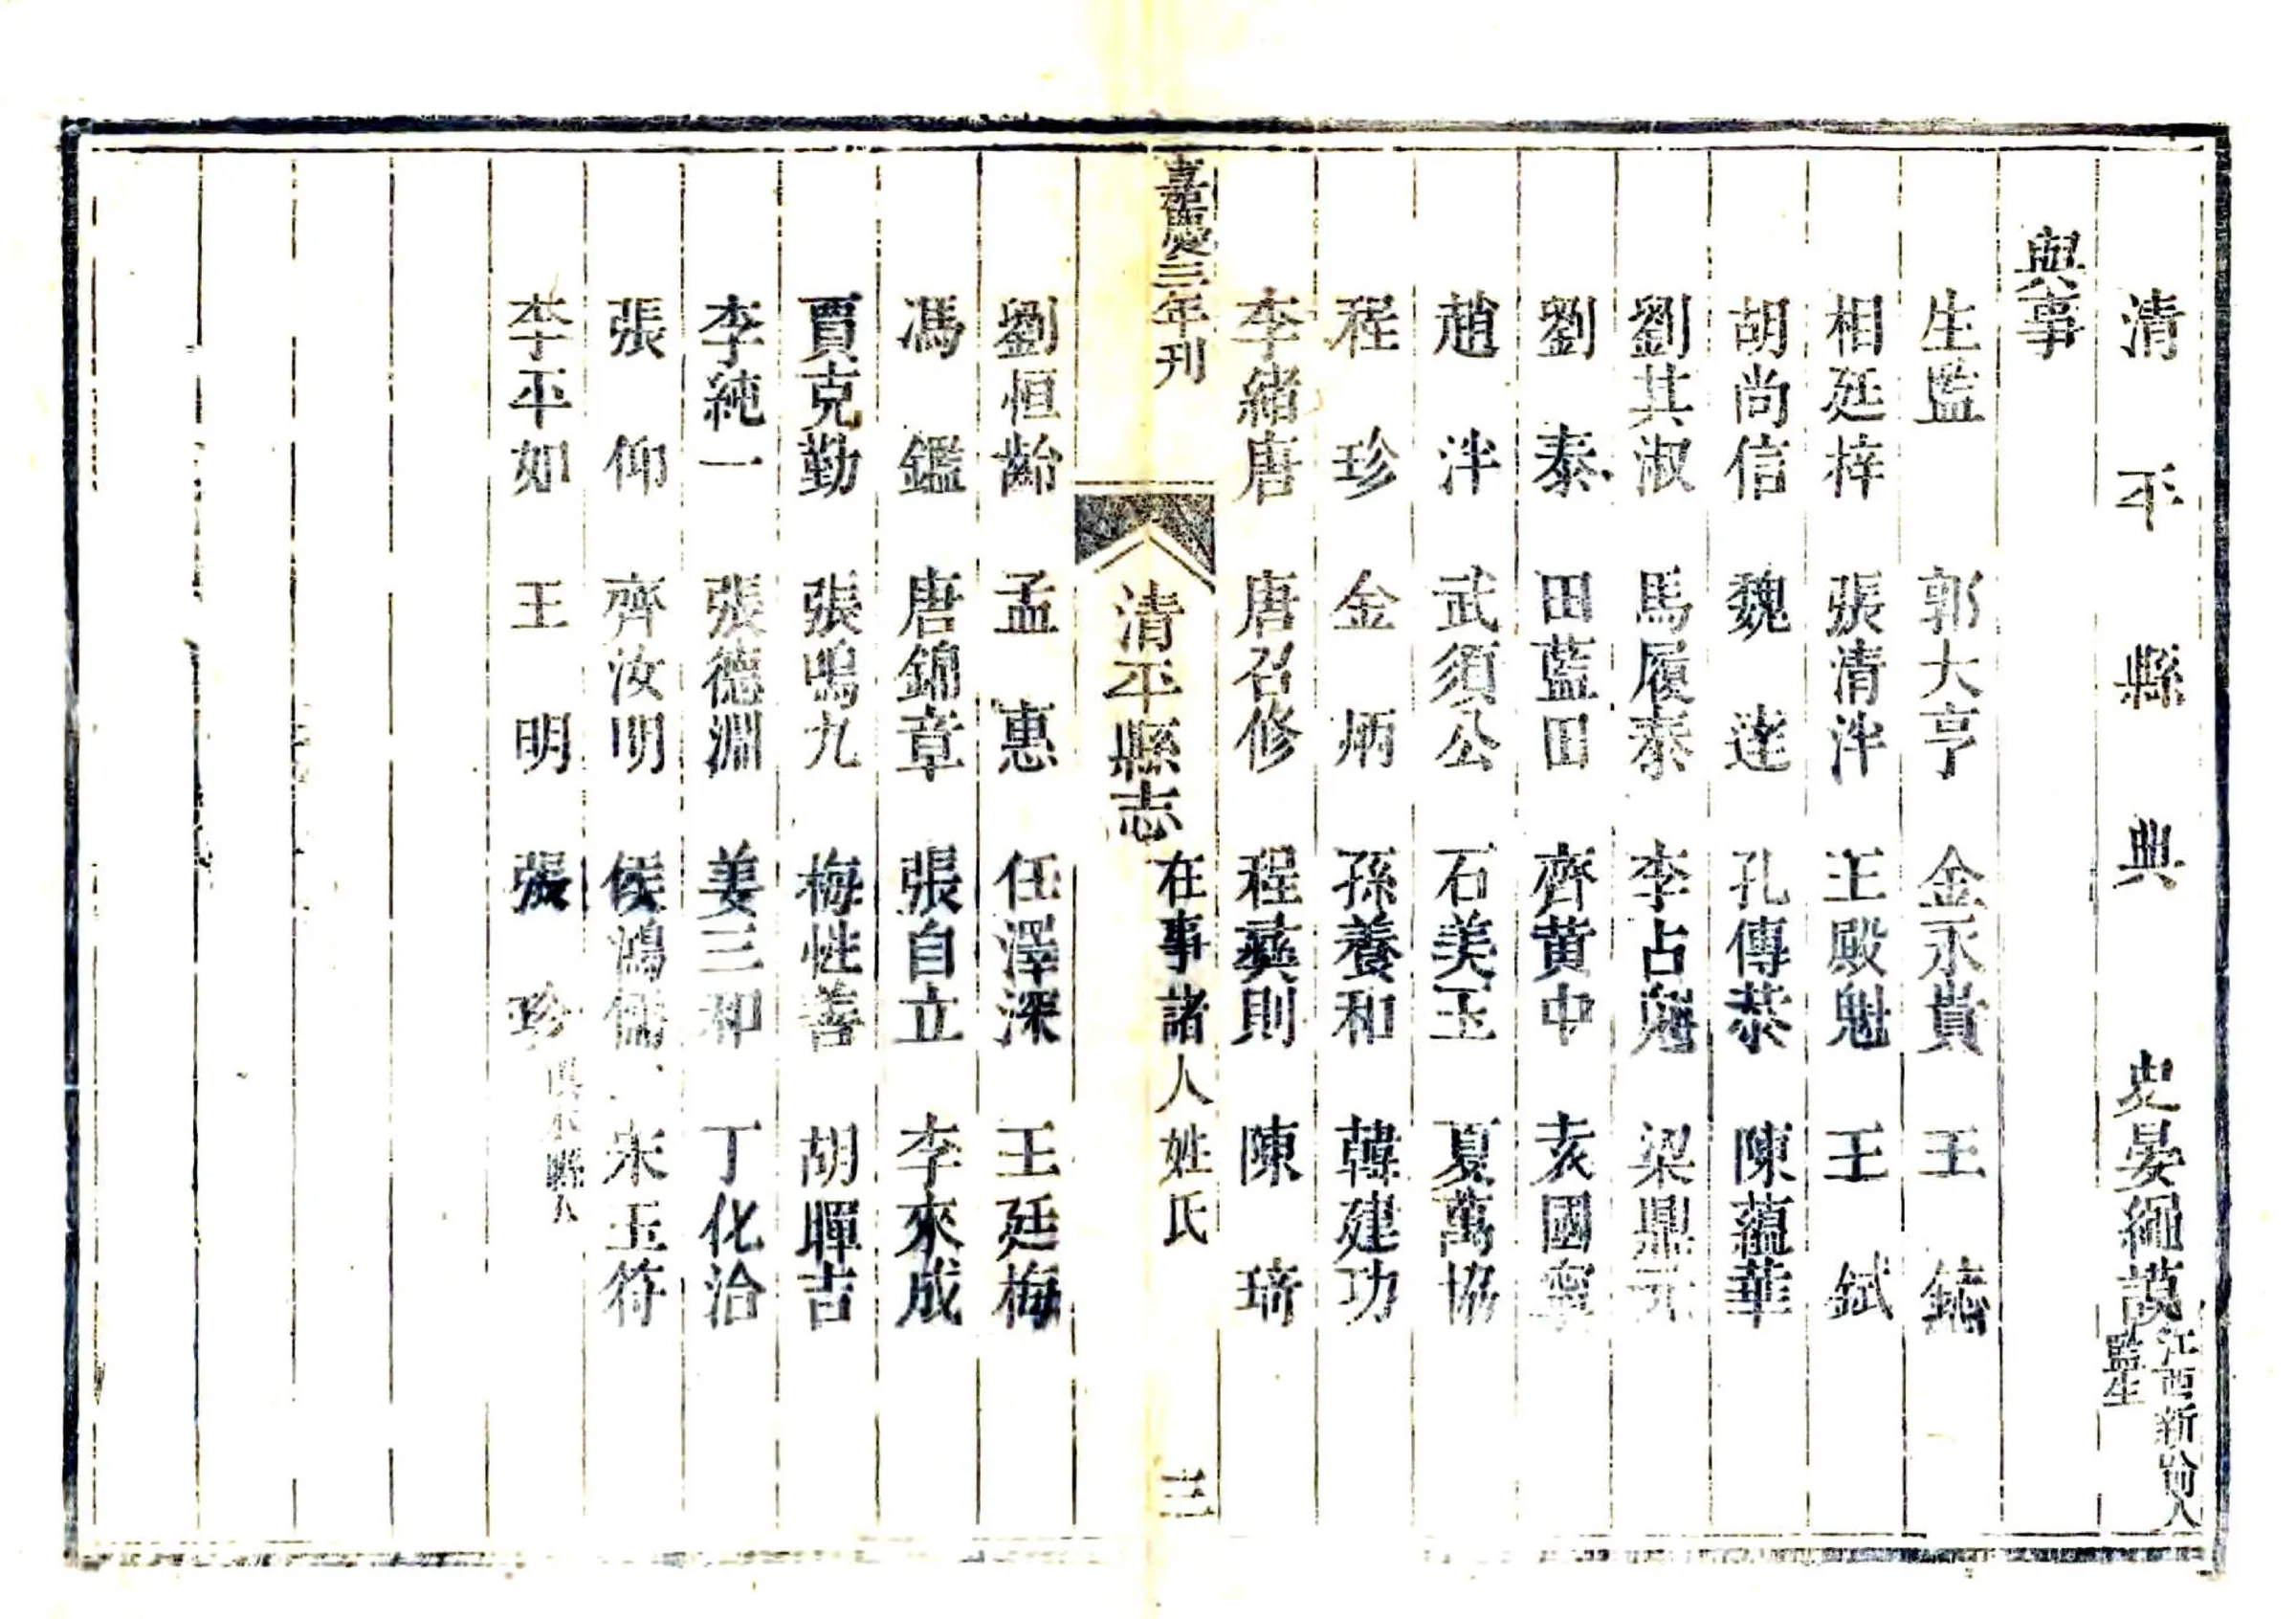 清平縣典史晏繩謨江西新喻人監生
與事
生監 郭大亨 金永貴 王鋕
相延梓 張清泮 王殿魁 王鉽
胡尚信 魏達 孔傳恭 陳蘊華
劉其淑 馬履泰 李占魁 梁鼎元
劉泰 田藍田 齊黃中 袁國寧
趙泮 武須公 石美玉 夏萬協
程珍 金炳 孫養和 韓建功
李緒唐 唐召修 程彝則 陳琦
嘉慶三年刊 清平縣志 在事諸人姓氏 三
劉恒齡 孟惠 任澤深 王廷梅
馮鑑 唐錦章 張自立 李來成
賈克勤 張鳴九 梅性善 胡暉吉
李純一 張德淵 姜三和 丁化洽
張仰 齊汝明 侯鴻儒 宋玉符
李平如 王明 張珍俱本縣人